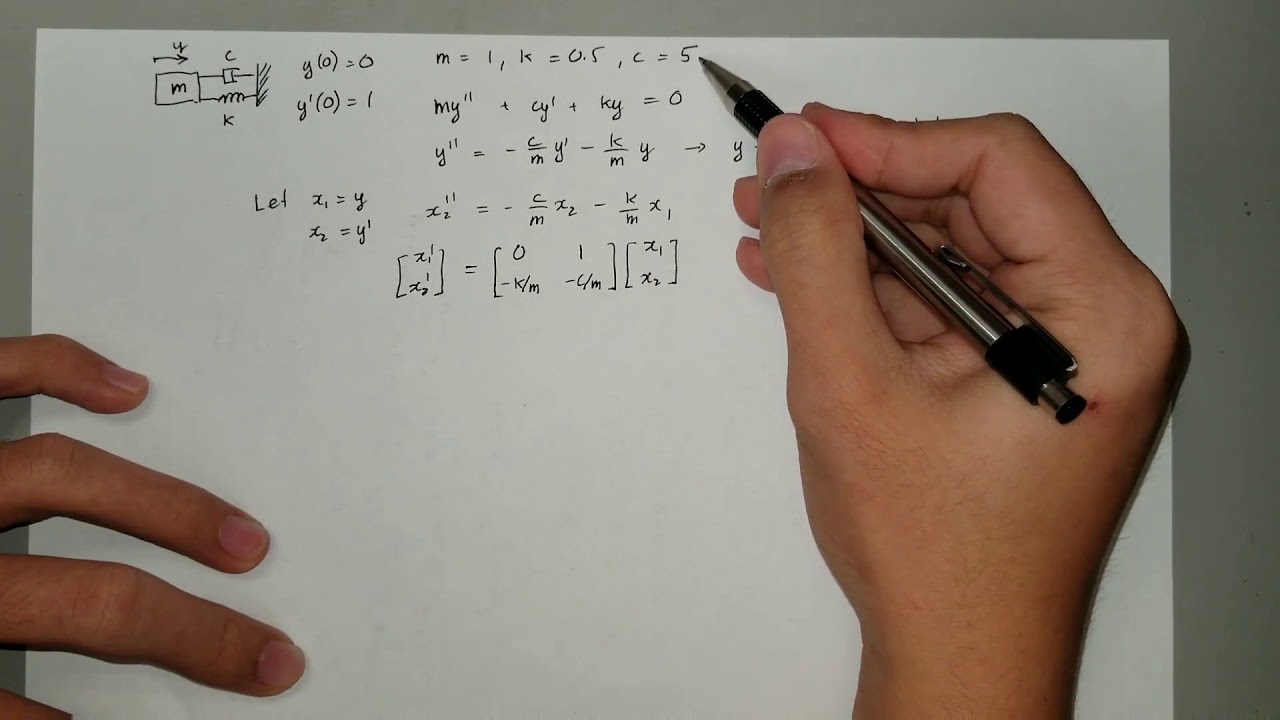 y
c
m
k
y(0) = 0
y'(0) = 1
m = 1, k = 0.5, c = 5
my'' + cy' + ky = 0
y'' = - c/m y' - k/m y → y
Let x₁ = y
x₂ = y'
x₂'' = - c/m x₂ - k/m x₁
[x₁' x₂'] = [0 1 -k/m -c/m] [x₁ x₂]